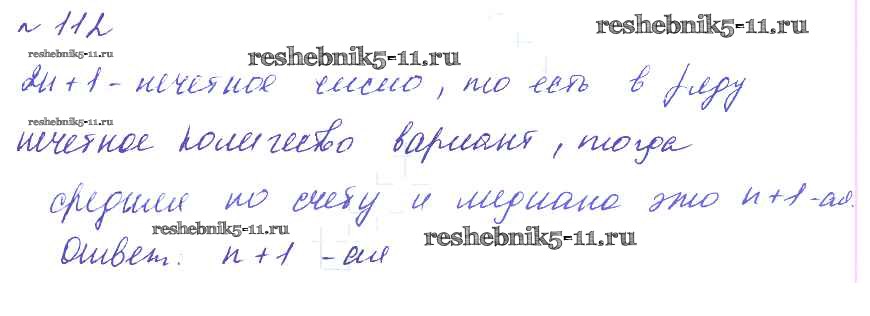 № 112
reshebnik5-11.ru
reshebnik5-11.ru
reshebnik5-11.ru
2n+1 - нечетное число, то есть в ряду
reshebnik5-11.ru
нечетное количество вариант, тогда
средняя по счету и медиана это n+1-ая.
reshebnik5-11.ru
reshebnik5-11.ru
Ответ: n+1 -ая